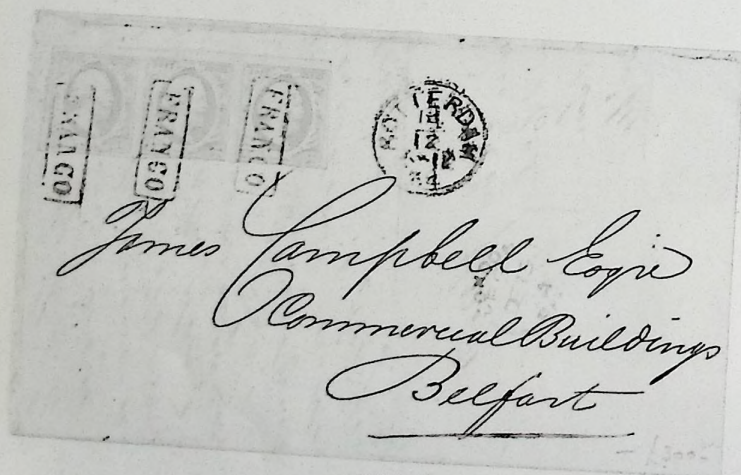 FRANCO FRANCO FRANCO
ROTTERDAM
12
James Campbell Esqre
Commercial Buildings
Belfast